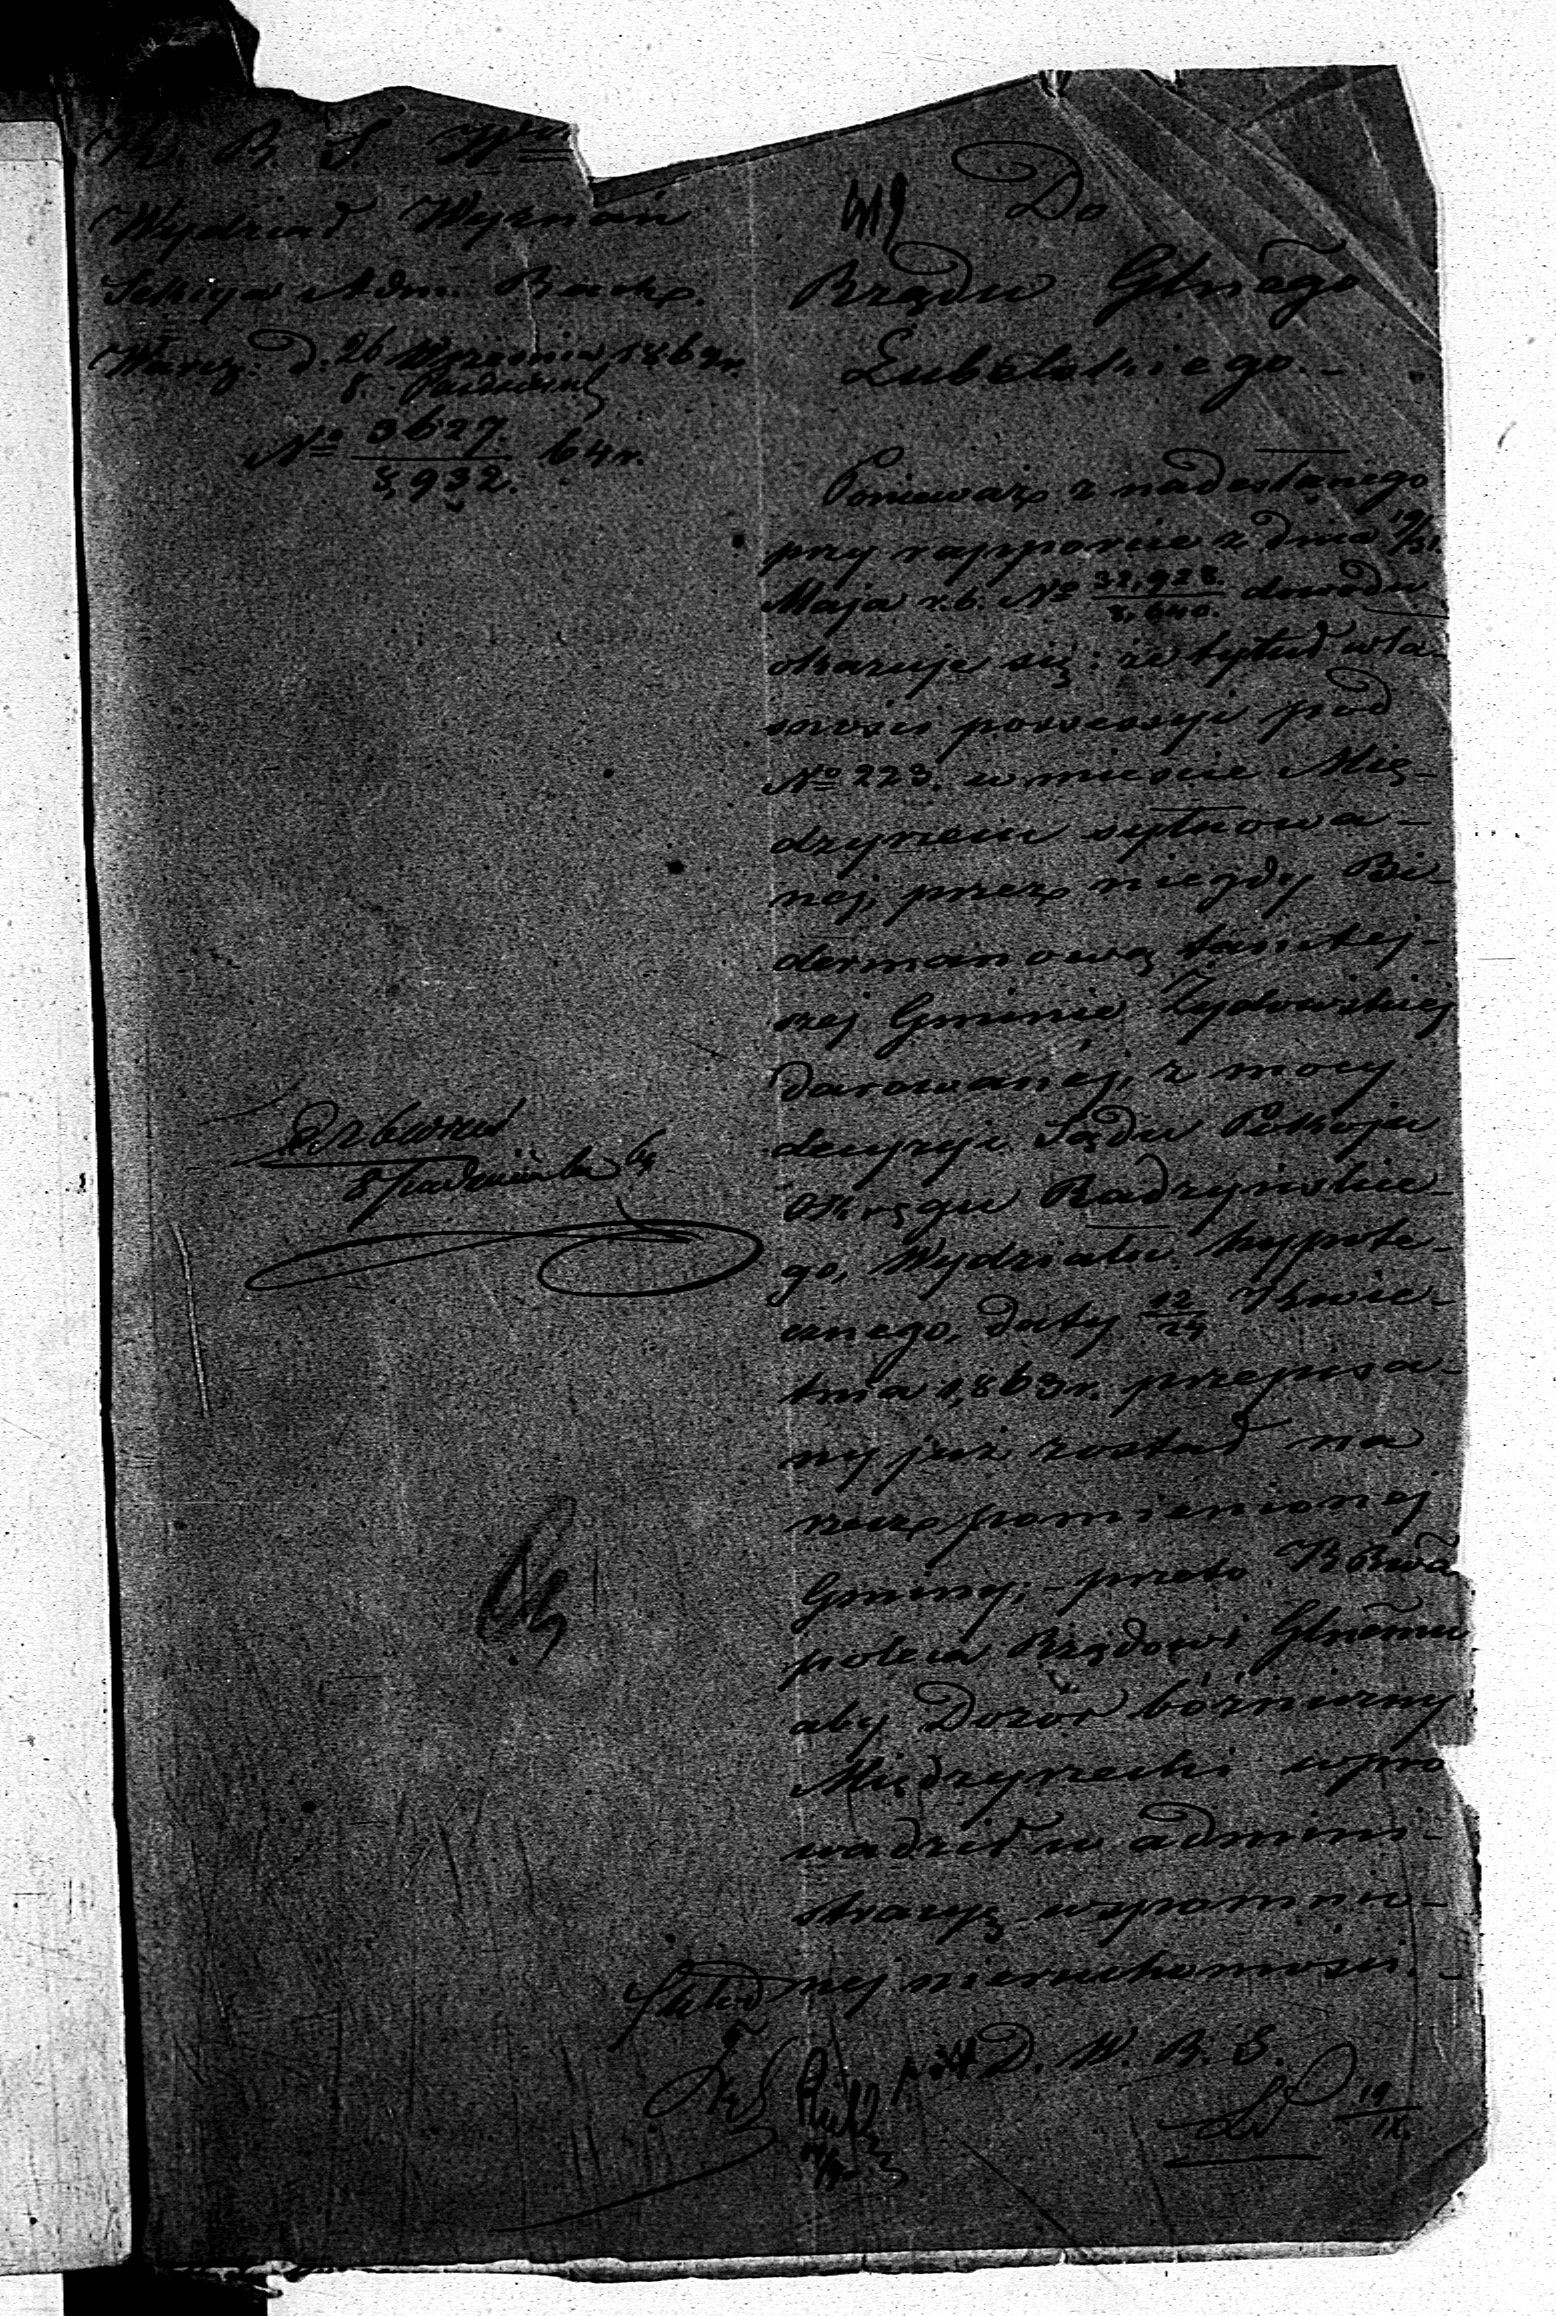 K. R. S. W.
Wydział Wyznań
Sekcya Adm. Rach.
Warsz. d. 26 Września 1864 r.
8 Październ
No 3627. 64 r.
8,932.
Do
Rządu Głnego
Lubelskiego. –
Ponieważ z nadesłanego
przy rapporcie z dnia 19/31.
Maja r.b. No 32,928. dowodu
8,640.
okazuje się: że tytuł wła-
sności possessyi pod
No 223. w mieście Mię-
dzyrzecu sytuowa-
nej, przez niegdy Bi-
dermanową tamtej-
szej Gminie Żydowskiej
darowanej, z mocy
decyzyi Sądu Pokoju
Okręgu Radzyńskie-
go, Wydziału hypote-
cznego, daty 12/24 Kwie-
tnia 1,863 r. przepisa-
ny już został na
rzecz pomienionej
Gminy; – przeto KRwa
poleca Rządowi Głnemu
aby Dozór bóżniczny
Międzyrzecki wpro
wadził w admini-
stracyę wspomnio-
nej nieruchomości. –
D. W. R. S.
19
IX.
8 Października 64